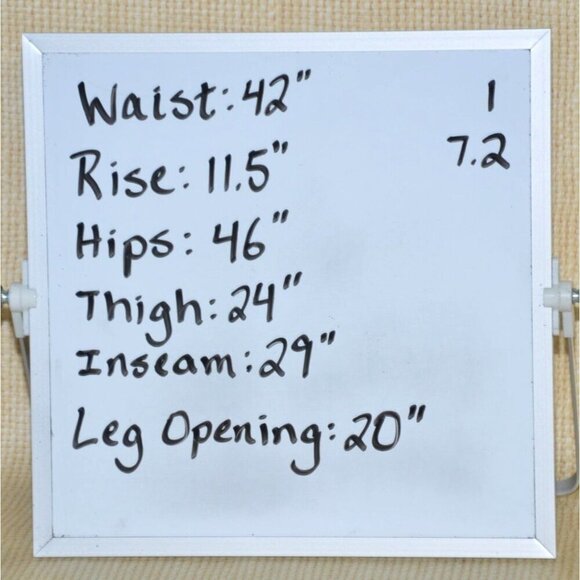 Waist: 42" 1
Rise: 11.5" 7.2
Hips: 46"
Thigh: 24"
Inseam: 29"
Leg Opening: 20"